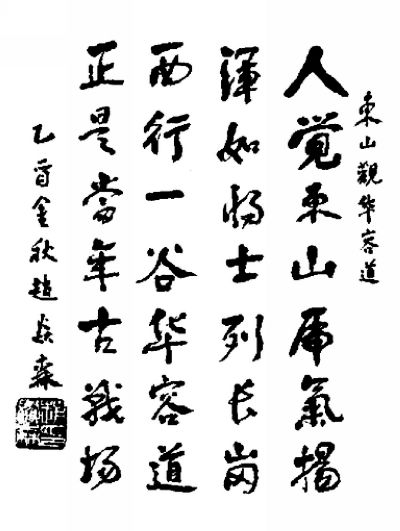 東山觀华容道
人覺東山虎氣揚
渾如将士列长崗
西行一谷华容道
正是當年古戰場
乙酉金秋趙焱森